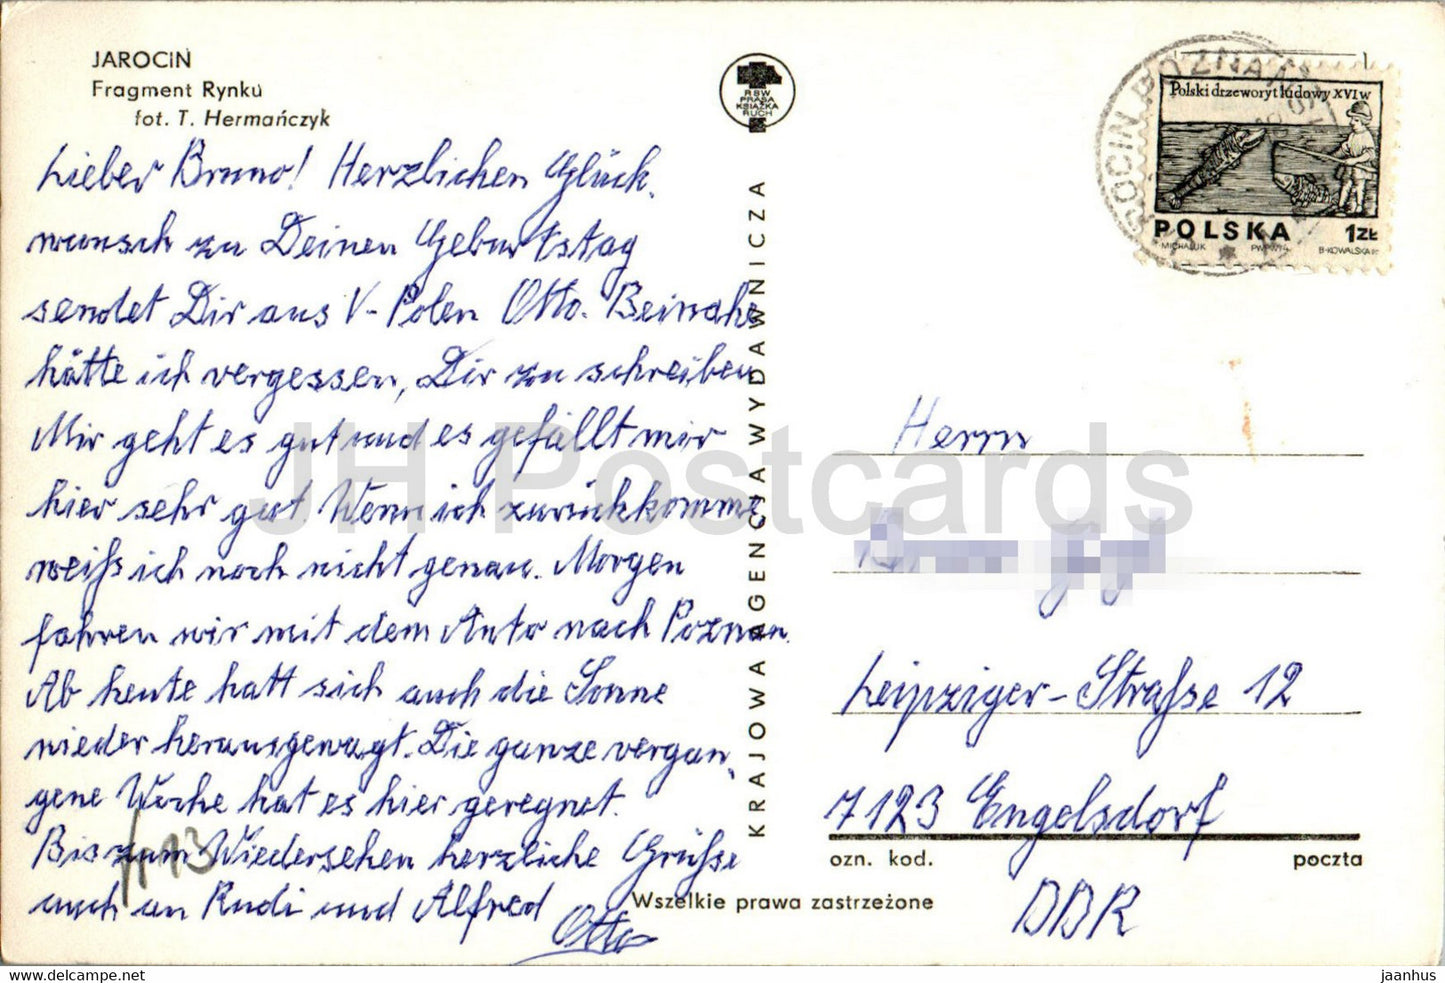 JAROCIN
Fragment Rynku
fot. T. Hermańczyk
Lieber Bruno! Herzlichen Glück-
wunsch zu Deinen Geburtstag
sendet Dir aus V-Polen Otto. Beinahe
hätte ich vergessen, Dir zu schreiben
Mir geht es gut und es gefällt mir
hier sehr gut. Wenn ich zurückkomme
weiß ich noch nicht genau. Morgen
fahren wir mit dem Auto nach Poznan.
Ab heute hatt sich auch die Sonne
wieder herausgewagt. Die ganze vergan-
gene Woche hat es hier geregnet.
Bis zum Wiedersehen herzliche Grüße
auch an Rudi und Alfred
Otto
13
RSW
PRASA
KSIĄŻKA
RUCH
KRAJOWA AGENCJA WYDAWNICZA
Wszelkie prawa zastrzeżone
JAROCIN POZNAŃSK
Polski drzeworyt ludowy XVI w
POLSKA 1ZŁ
MICHALUK PWPW74 B·KOWALSKA
Herrn
Leipziger-Straße 12
7123 Engelsdorf
ozn. kod. poczta
DDR
JH Postcards
https://jhpostcard.net jaanhus